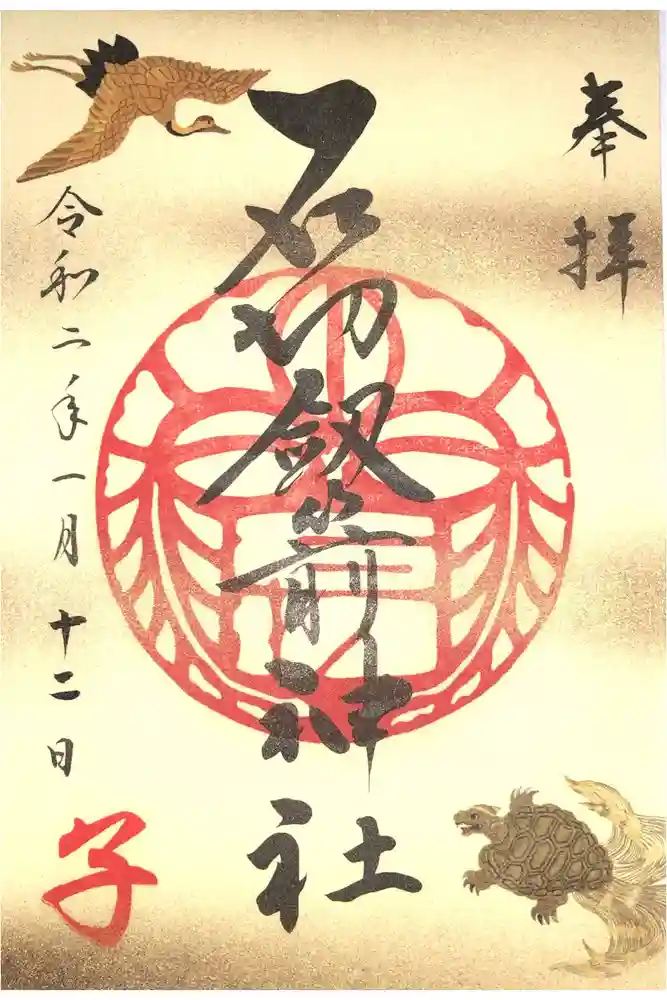 奉拝
石切劔箭神社
令和二年一月十二日
子